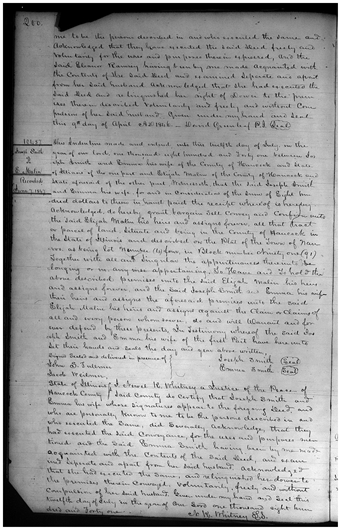 200.
me to be the person described in and who executed the same and
Acknowledged that they have executed the said Deed freely and
Voluntarily for the uses and purposes therein expressed, And the
said having been by me made acquainted with
the Contents of the said Deed and examined Separate and apart
from her said Husband acknowledged that she had executed the
said Deed and relinquished her right of dower to the premises
therein described Voluntarily and freely and without Com
pulsion of her said husband. Given under my hand and Seal
this 9th day of April AD David Greenleaf P.S. Seal
This Indenture made and entered into this twelfth day of July in the
year of our Lord one thousand eight hundred and forty one between Jo
seph Smith and Emma his wife of the County of Hancock and State
of Illinois of the one part and Elijah Malin of the County of Hancock and
State aforesaid of the other part Witnesseth, that the said Joseph Smith
and Emma his wife for and in Consideration of the Sum of Eight hun
dred dollars to them in hand paid the receipt whereof is hereby
Acknowledged, do hereby grant bargain Sell Convey and Confirm unto
the said Elijah Malin his heirs and assigns forever, all that tract
or parcel of land Situate and being in the County of Hancock in
the State of Illinois and described on the Plat of the Town of Nau
voo as being Lot Number in Block number Ninety one (91)
Together with all and singular the appurtenances thereunto be
longing or in any wise appertaining, To Have and To hold the
above described premises unto the said Elijah Malin his heirs
and assigns forever and the said Joseph Smith and Emma his wife
their heirs and assigns the aforesaid premises unto the said
Elijah Malin his heirs and assigns against the Claim or Claims of
all and every person whomsoever, do and will Warrant and for
ever defend by these presents, In Testimony whereof the said Jo
seph Smith and Emma his wife of the first Part have hereunto
set their hands and Seals the day and year above written
Signed Sealed and delivered in presence of Joseph Smith Seal
John S. Fullmer Emma Smith Seal
Jacob
State of Illinois I Newel K. Whitney a Justice of the Peace of
Hancock County said County do Certify that Joseph Smith and
Emma his wife whose Signatures appear to the foregoing Deed, and
who are personally known to me to be the persons described in and
who executed the Same, did Severally acknowledge, that they
had executed the said Conveyance, for the uses and purposes men
tioned and the said Emma Smith having been by me made
acquainted with the Contents of the said Deed, and exam
ined Separate and apart from her said husband acknowledged
that she had executed the same, and relinquished her dower to
the premises therein Conveyed, Voluntarily, freely and without
Compulsion of her said husband Given under my hand and Seal this
twelfth day of July in the year of our Lord one thousand eight hun
dred and forty one N. K. Whitney P.S.
Joseph Smith
Recorded